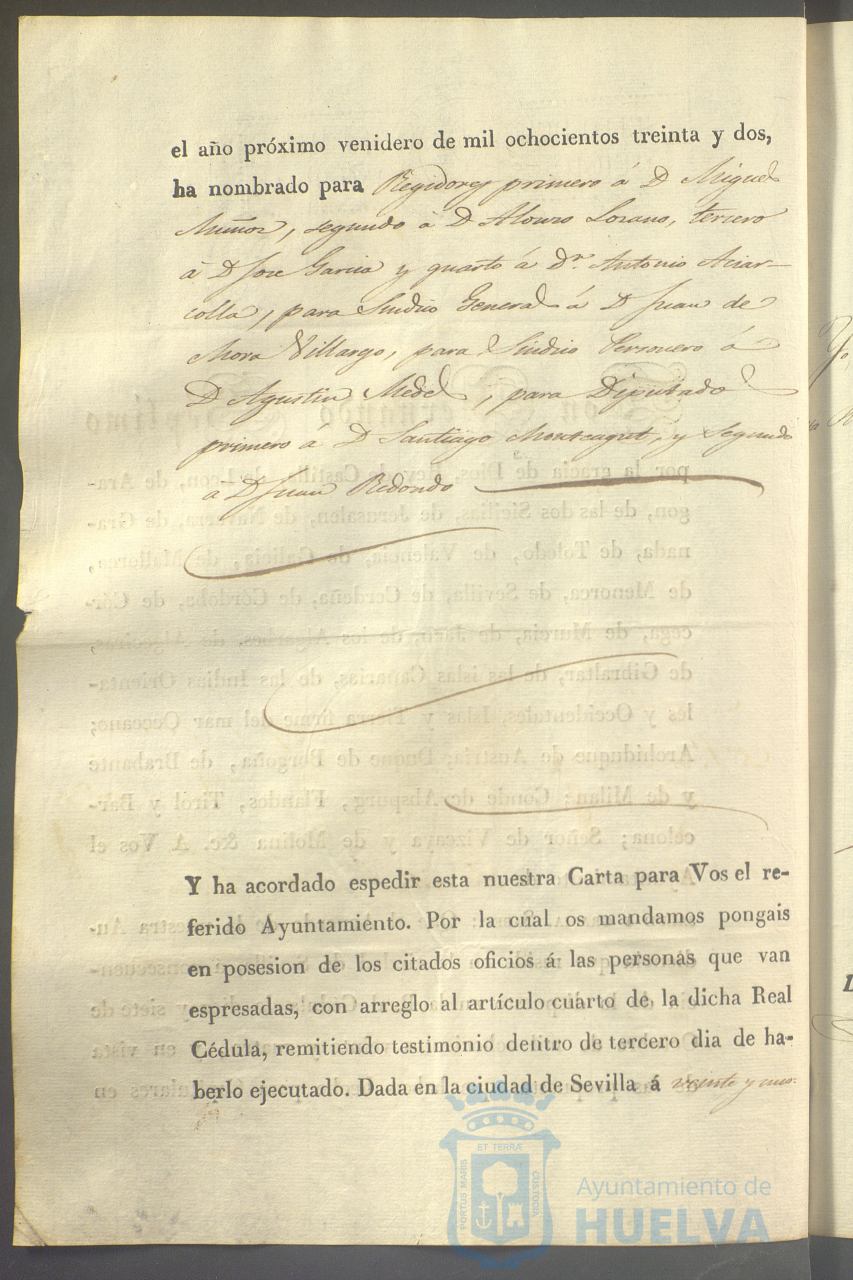 el año próximo venidero de mil ochocientos treinta y dos,
ha nombrado para Regidores primero á D Miguel
Muñoz, segundo á D Alonso Lozano, tercero
á D Jose Garcia y quarto á Dn. Antonio Aciar-
colla, para Sindico General á D Juan de
Mora Villargo, para Sindico Personero á
D Agustin Medel, para Diputado
primero á D Santiago y segundo
a D Juan Redondo
Y ha acordado espedir esta nuestra Carta para Vos el re-
ferido Ayuntamiento. Por la cual os mandamos pongais
en posesion de los citados oficios á las personas que van
espresadas, con arreglo al artículo cuarto de la dicha Real
Cédula, remitiendo testimonio dentro de tercero dia de ha-
berlo ejecutado. Dada en la ciudad de Sevilla á veinte y
ET TERRÆ
PORTUS MARIS
CUSTODIA
Ayuntamiento de
HUELVA